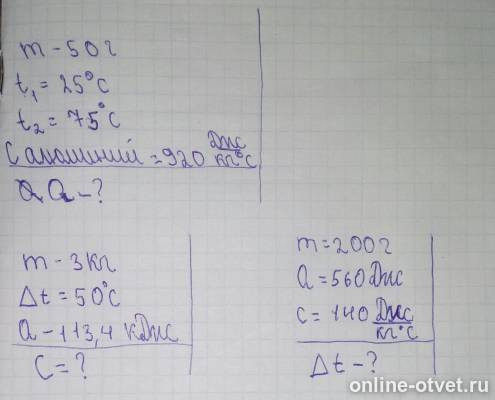 m - 50 г
t₁ = 25°C
t₂ = 75°C
C алюминий = 920 Дж/кг°C
Q - ?
m - 3 кг
Δt = 50°C
Q - 113,4 кДж
C = ?
m = 200 г
Q = 560 Дж
c = 140 Дж/кг°C
Δt - ?
online-otvet.ru